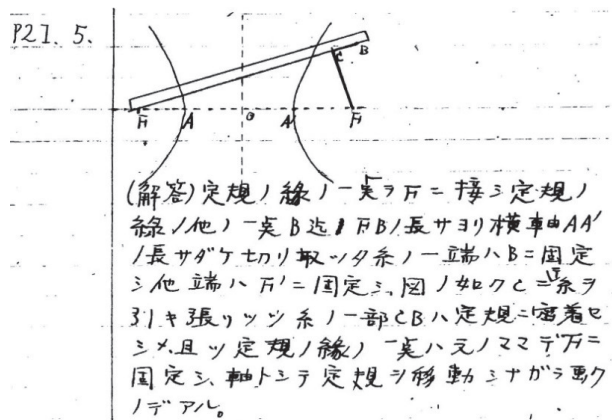 P27. 5.
B
C
F A O A' F'
(解答) 定規ノ縁ノ一点ヲFニ接シ定規ノ
縁ノ他ノ一点B迄ノFBノ長サヨリ横軸AA'
ノ長サダケ切リ取ッタ糸ノ一端ハBニ固定
シ他端ハF'ニ固定シ、図ノ如クCニ糸ヲ
引キ張リツツ糸ノ一部CBハ定規ニ密着セ
シメ且ツ定規ノ縁ノ一点ハ元ノママデFニ
固定シ、軸トシテ定規ヲ移動シナガラ画ク
ノデアル。